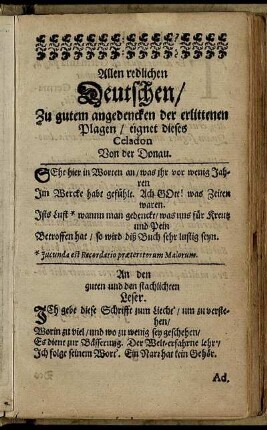 Allen redlichen
Deutschen/
Zu gutem angedencken der erlittenen
Plagen / eignet dieses
Celadon
Von der Donau.
SEht hier in Worten an/was ihr vor wenig Jah-
ren
Im Wercke habt gefühlt. Ach GOtt! was Zeiten
waren.
Ists Lust * wann man gedenckt/was uns für Kreutz
und Pein
Betroffen hat / so wird diß Buch sehr lustig seyn.
* Jucunda est Recordatio præteritorum Malorum.
An den
guten und den stachlichten
Leser.
ICh gebe diese Schrifft zum Liecht/ um zu verste-
hen/
Worin zu viel/und wo zu wenig sey geschehen/
Es dient zur Bässerung. Der Welt-erfahrne lehr/
Ich folge seinem Wort. Ein Narr hat kein Gehör.
Ad.